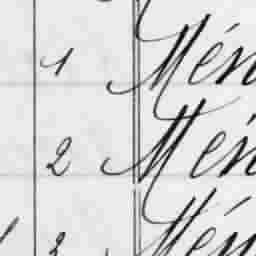 1 Mén
2 Mén
3 Mén